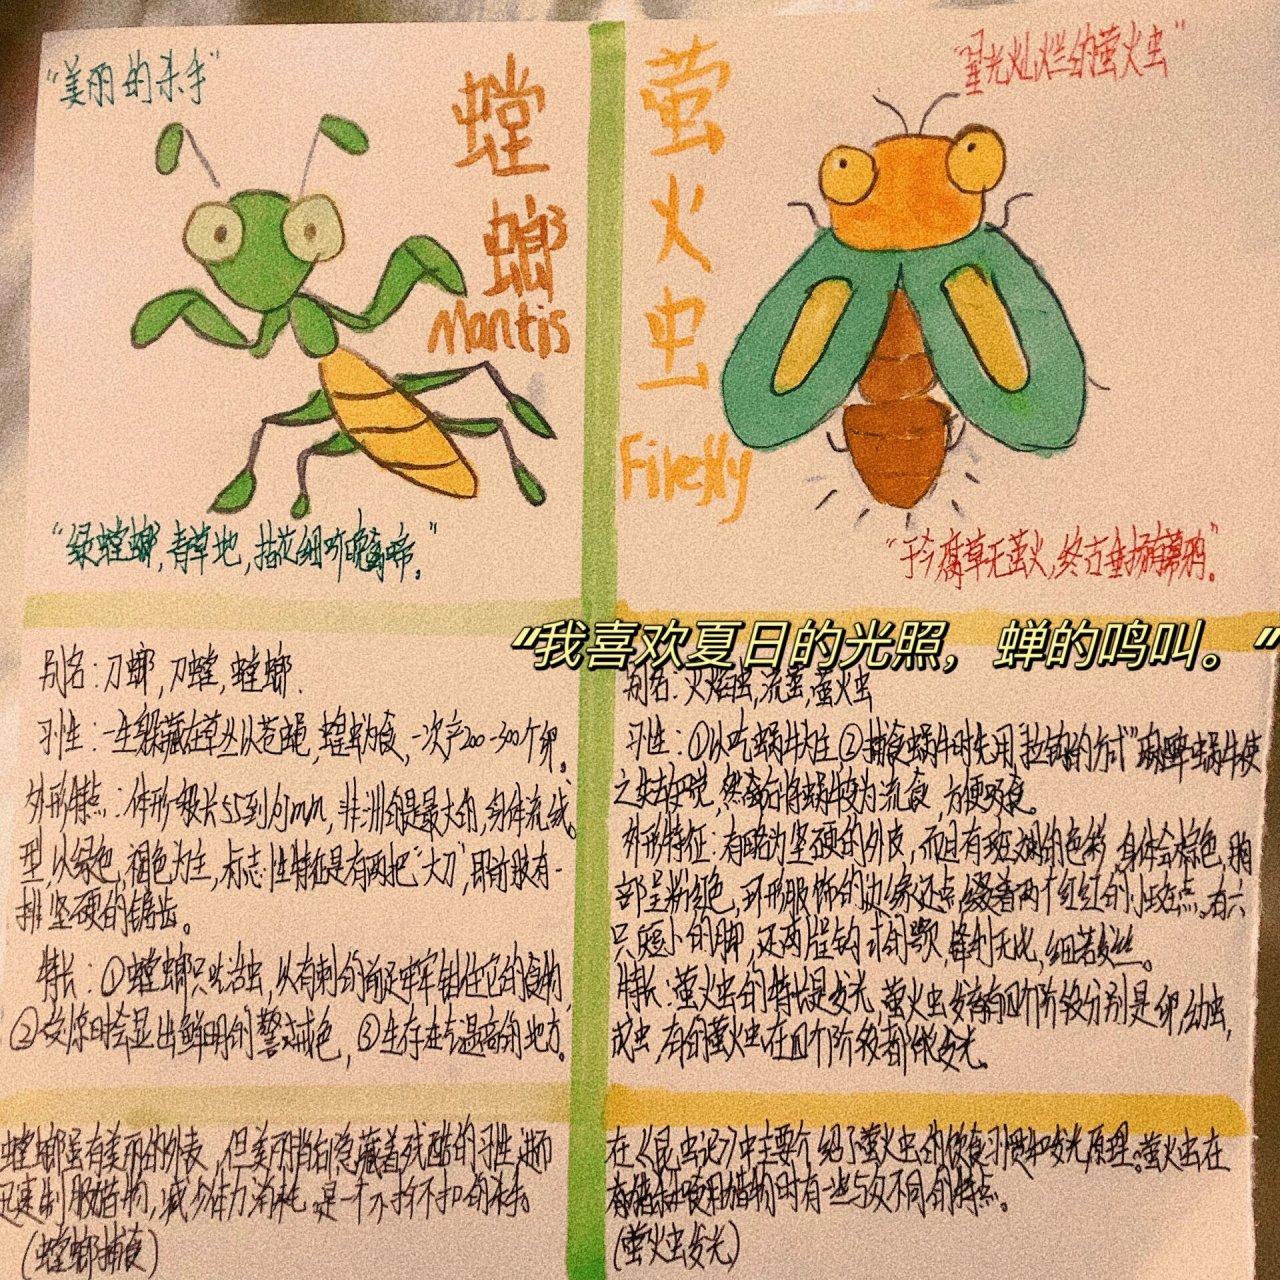 "美丽的杀手"
螳
螂
Mantis
"绿螳螂,青草地,
别名:刀螂,刀螳,螳螂.
习性:一生躲藏在草丛以苍蝇,蝗虫为食,一次产200-300个卵。
外形特点:体形一般长55到105mm,非洲的是最大的,身体流线
型,以绿色,褐色为主,标志性特征是有两把"大刀",即前肢有一
排坚硬的锯齿。
特长:①螳螂只吃活虫,以有刺的前足牢牢钳住它的食物,
②受惊时会显出鲜明的警戒色,③生存在气温高的地方。
螳螂虽有美丽的外表,但美丽背后隐藏着残酷的习性,进而
迅速制服猎物,减少体力消耗,是一个不折不扣的杀手。
(螳螂捕食)
萤
火
虫
Firefly
"星光灿烂的萤火虫"
"于今腐草无萤火,终古垂杨有暮鸦。"
"我喜欢夏日的光照，蝉的鸣叫。"
别名:火焰虫,流萤,萤火虫
习性:①以吃蜗牛为主②捕食蜗牛时先用"拉钩的方式"麻醉蜗牛使
之失去知觉,然后将蜗牛变为流食,方便吸食。
外形特征:有略为坚硬的外皮,而且有斑斓的色彩,身体会棕色,胸
部呈粉红色,环形服饰的边缘还点缀着两个红红的小斑点。有六
只短小的脚,还两片钩状的颚,锋利无比,细若发丝。
特长:萤火虫的特长是发光,萤火虫发育有四个阶段分别是卵,幼虫,
成虫,有的萤火虫在四个阶段都能发光。
在《昆虫记》中主要介绍了萤火虫的饮食习惯和发光原理。萤火虫在
猎物时有一些与众不同的特点。
(萤火虫发光)